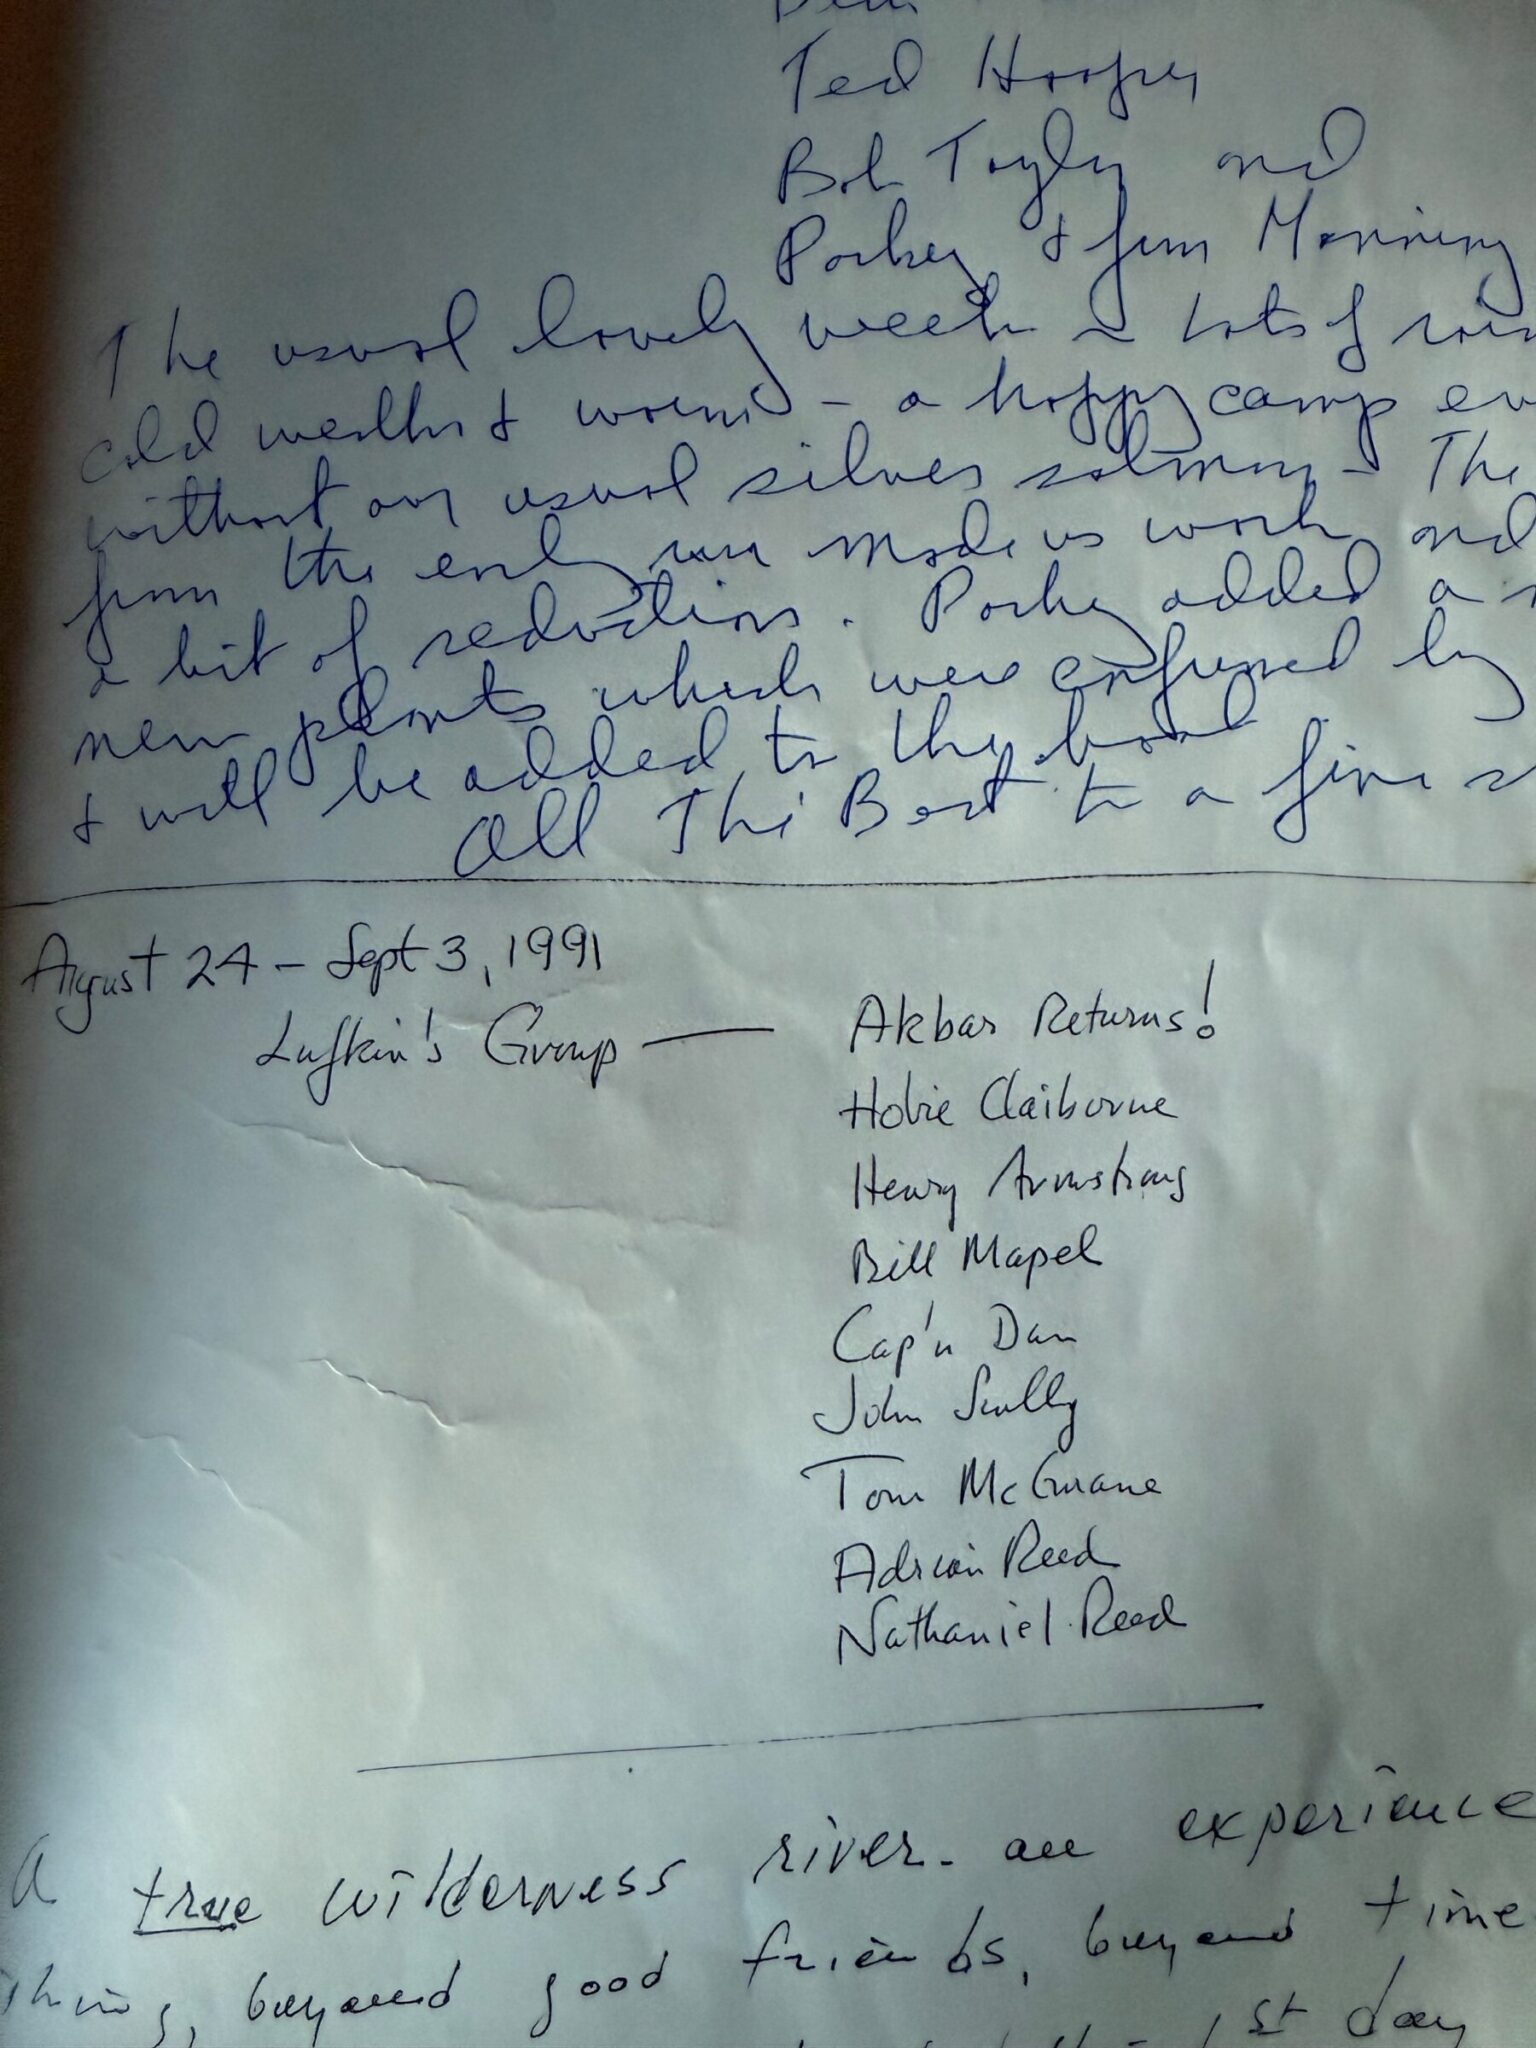 Ted Hooper
Bob Tayly and
Porkey & Jim Manning
The usual lovely week ~ Lots of
cold weather & worms - a happy camp
without our usual silver salmon - The
from the early run made us work and
a bit of seduction. Porkey added a
new plants which were confirmed by
& will be added to the book
All The Best to a fine
August 24 - Sept 3, 1991
Lufkin's Group — Akbar Returns!
Hobie Claiborne
Henry Armstrong
Bill Mapel
Cap'n Dan
John Scully
Tom McGuane
Adrian Reed
Nathaniel Reed
A true wilderness river - an experience
beyond good friends, beyond time
1st day